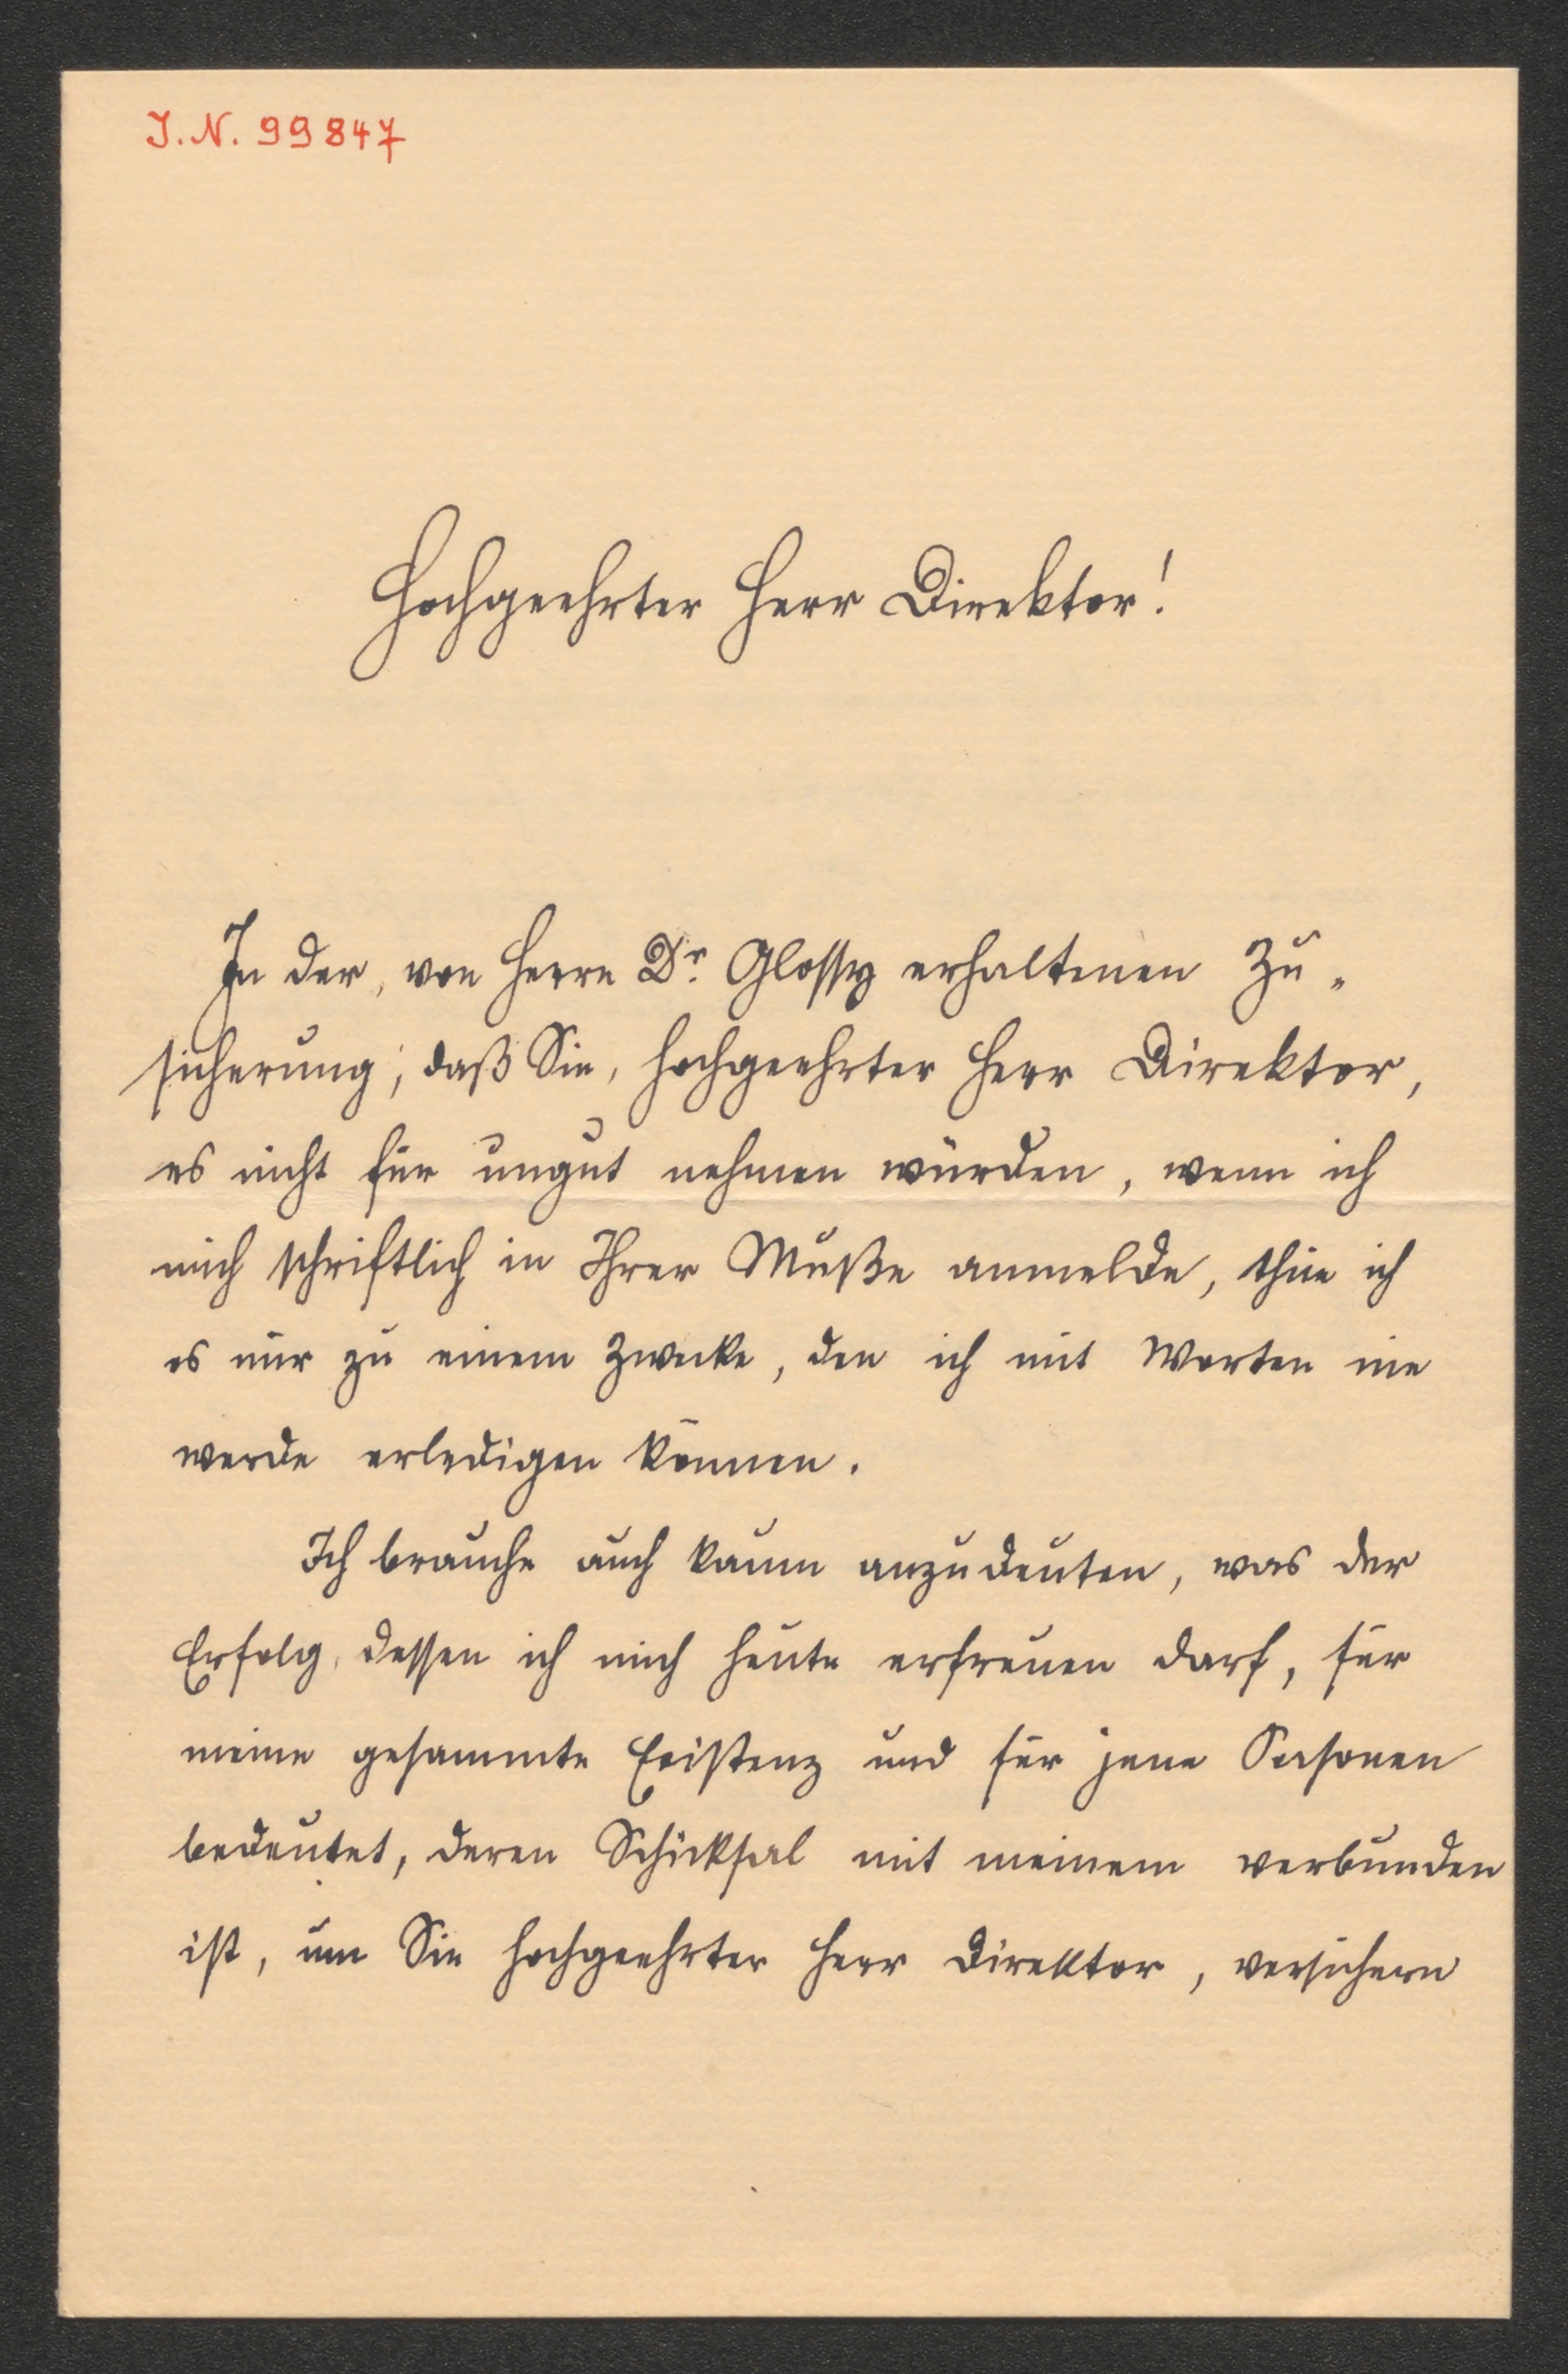 J.N. 99847
Hochgeehrter Herr Direktor!
In der, von Herrn Dr. Glossy erhaltenen Zu„
sicherung, daß Sie, hochgeehrter Herr Direktor,
es nicht für ungut nehmen würden, wenn ich
mich schriftlich in Ihrer Muße anmelde, thue ich
es nur zu einem Zwecke, den ich mit Worten nie
werde erledigen können.
Ich brauche auch kaum anzudeuten, was der
Erfolg, dessen ich mich heute erfreuen darf, für
meine gesammte Existenz und für jene Personen
bedeutet, deren Schicksal mit meinem verbunden
ist, um Sie hochgeehrter Herr Direktor, versichern